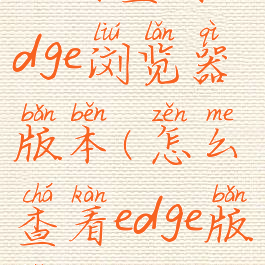 liú lǎn qì
dge浏览器
bǎn běn zěn me
版本(怎么
chá kàn bǎn
查看edge版